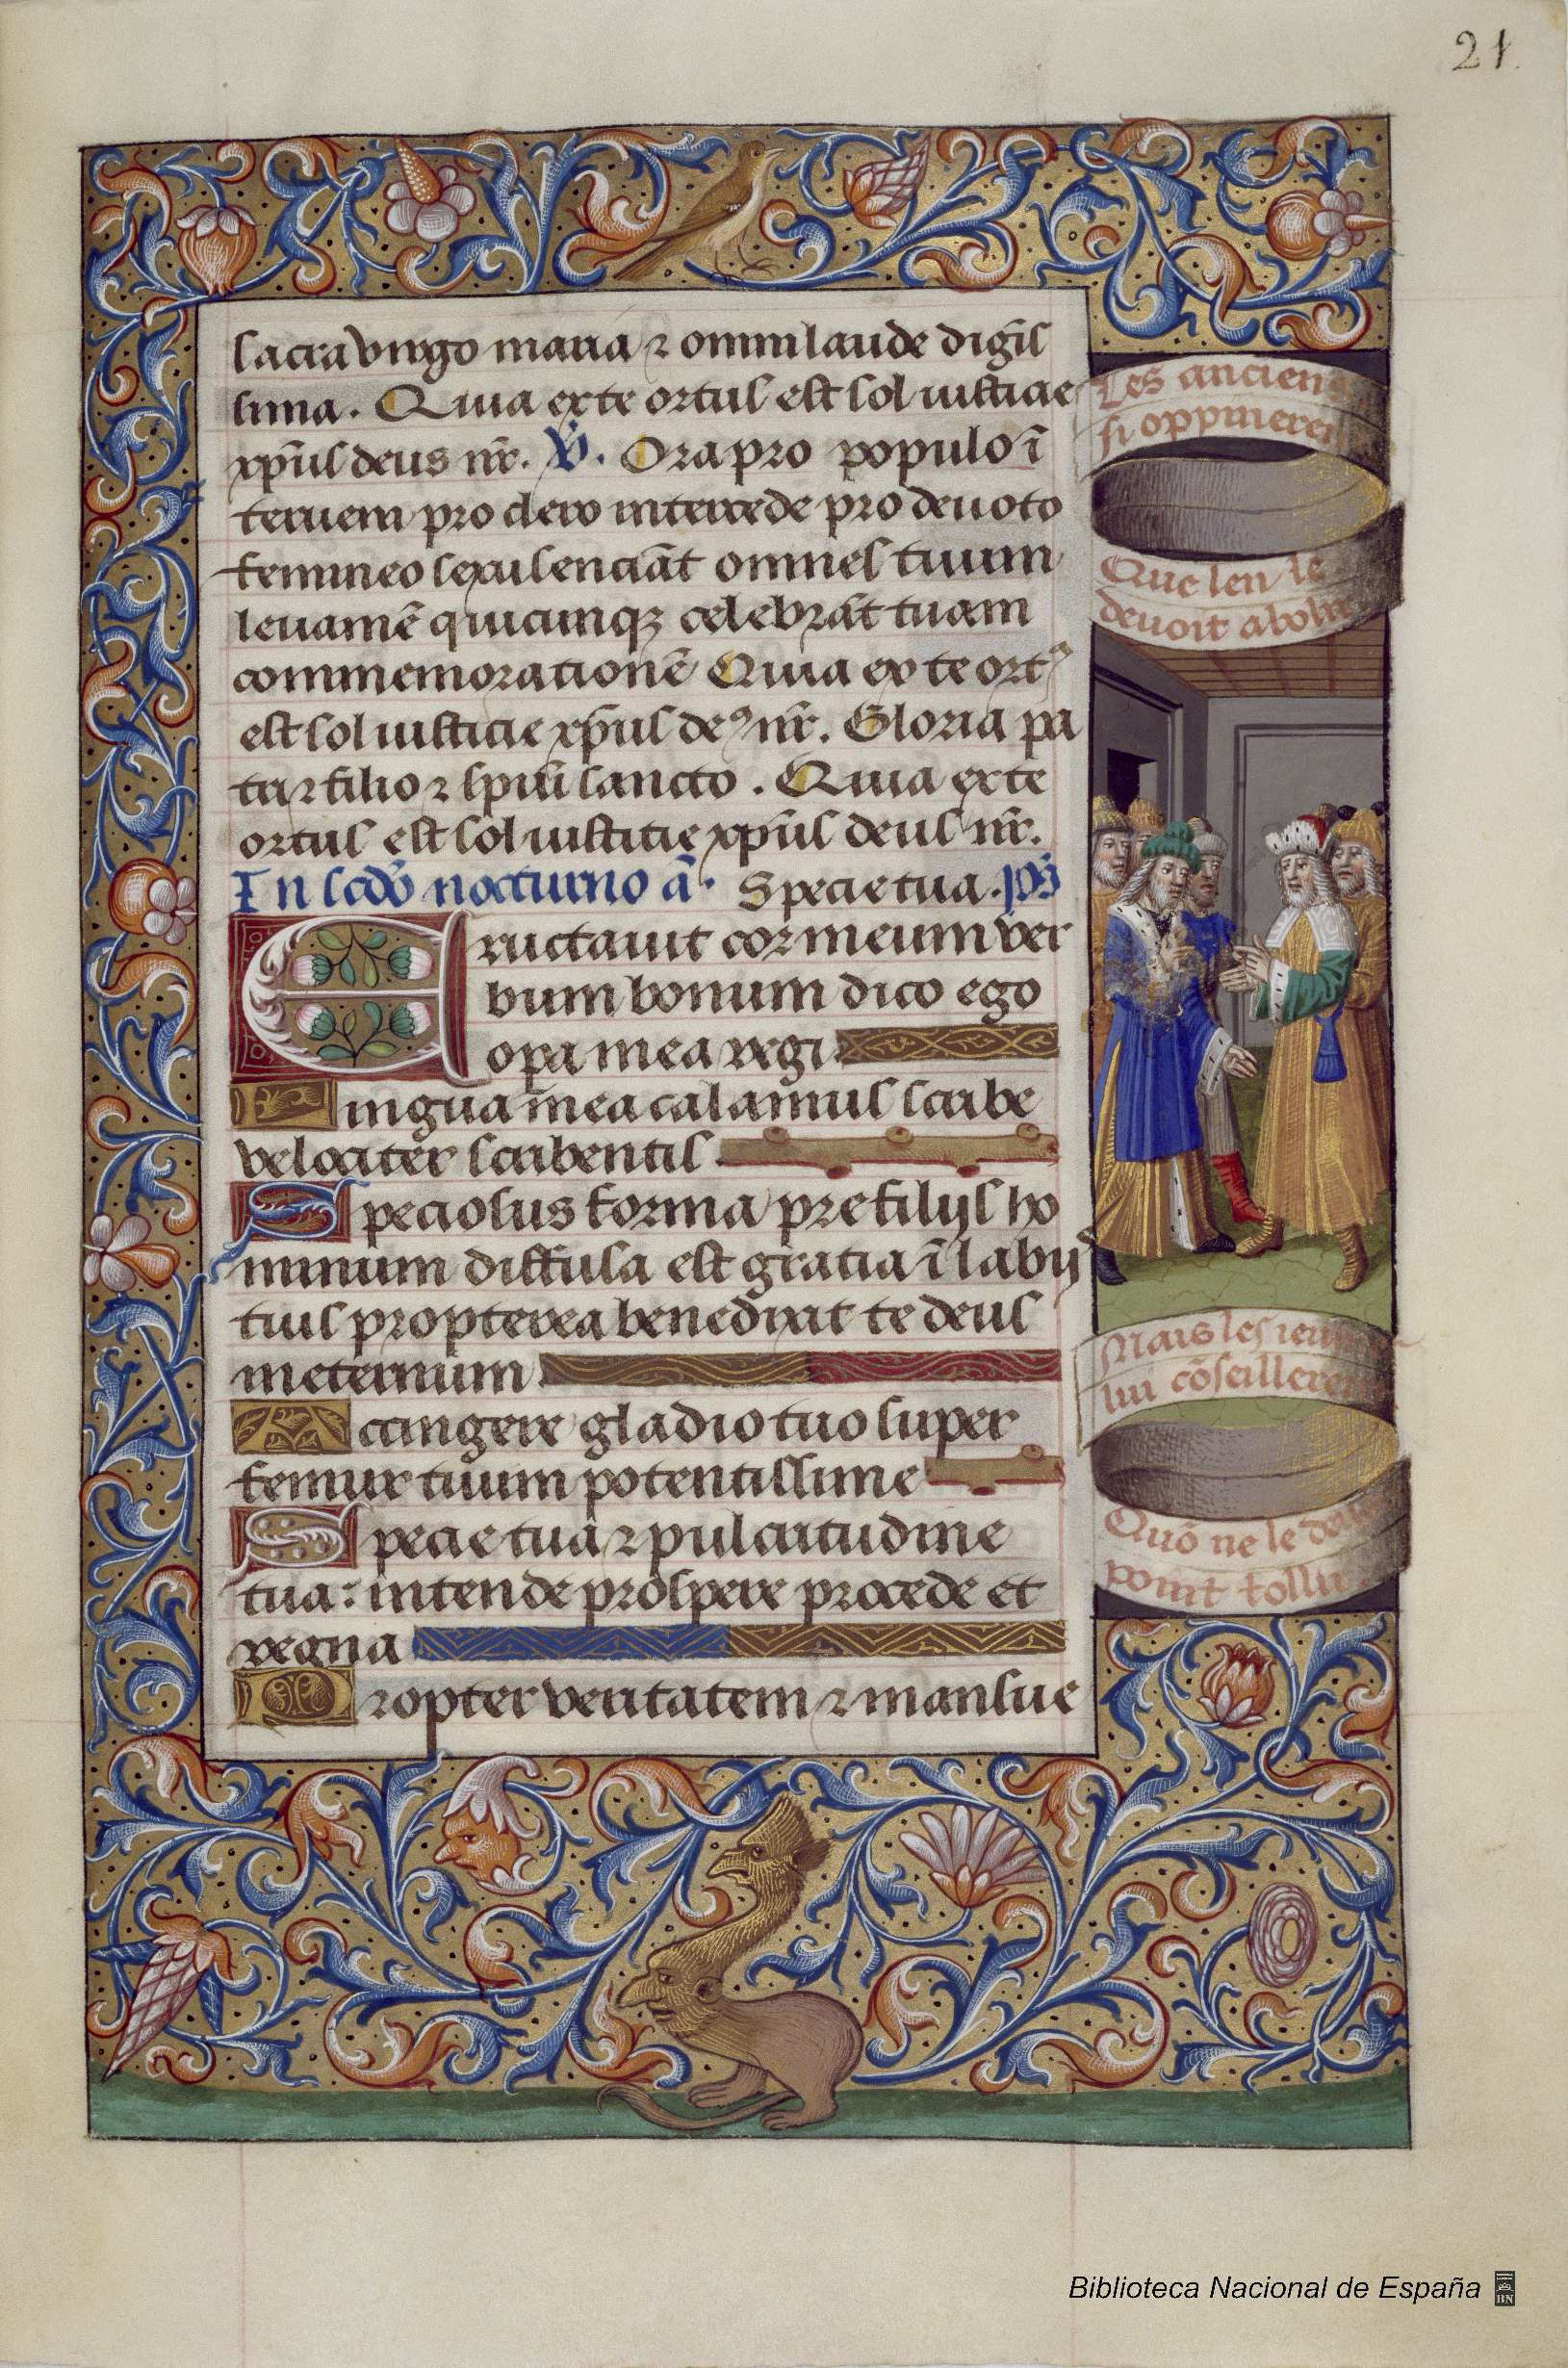 21.
sacra virgo maria ⁊ omni laude digiſ
ſima. Quia ex te ortus est sol iusticie
xp̄us deus nr̄. V̄. Ora pro populo ī
terueni pro clero intercede pro deuoto
femineo sexu senciāt omnes tuum
leuamē quicunqꝫ celebrāt tuam
commemorationē Quia ex te ortꝰ
est sol iusticie xp̄us deꝰ nr̄. Gloria pa
tri ⁊ filio ⁊ sp̄ui sancto. Quia ex te
ortus est sol iusticie xp̄us deus nr̄.
In scd̄o nocturno ā. Specie tua. ps̄
Eructauit cor meum ver
bum bonum dico ego
opa mea regi.
Lingua mea calamus scribe
velociter scribentis.
Speciosus forma pre filijs ho
minum diffusa est gratia ī labijs
tuis propterea benedixit te deus
in eternum.
Accingere gladio tuo super
femur tuum potentissime
Specie tua ⁊ pulcritudine
tua: intende prospere procede et
regna
Propter veritatem ⁊ mansue
Les anciens
si oppinerent
Que len le
deuoit abolir
Mais les ieu
lui cōseillere
Quō ne le
point tollir
Biblioteca Nacional de España